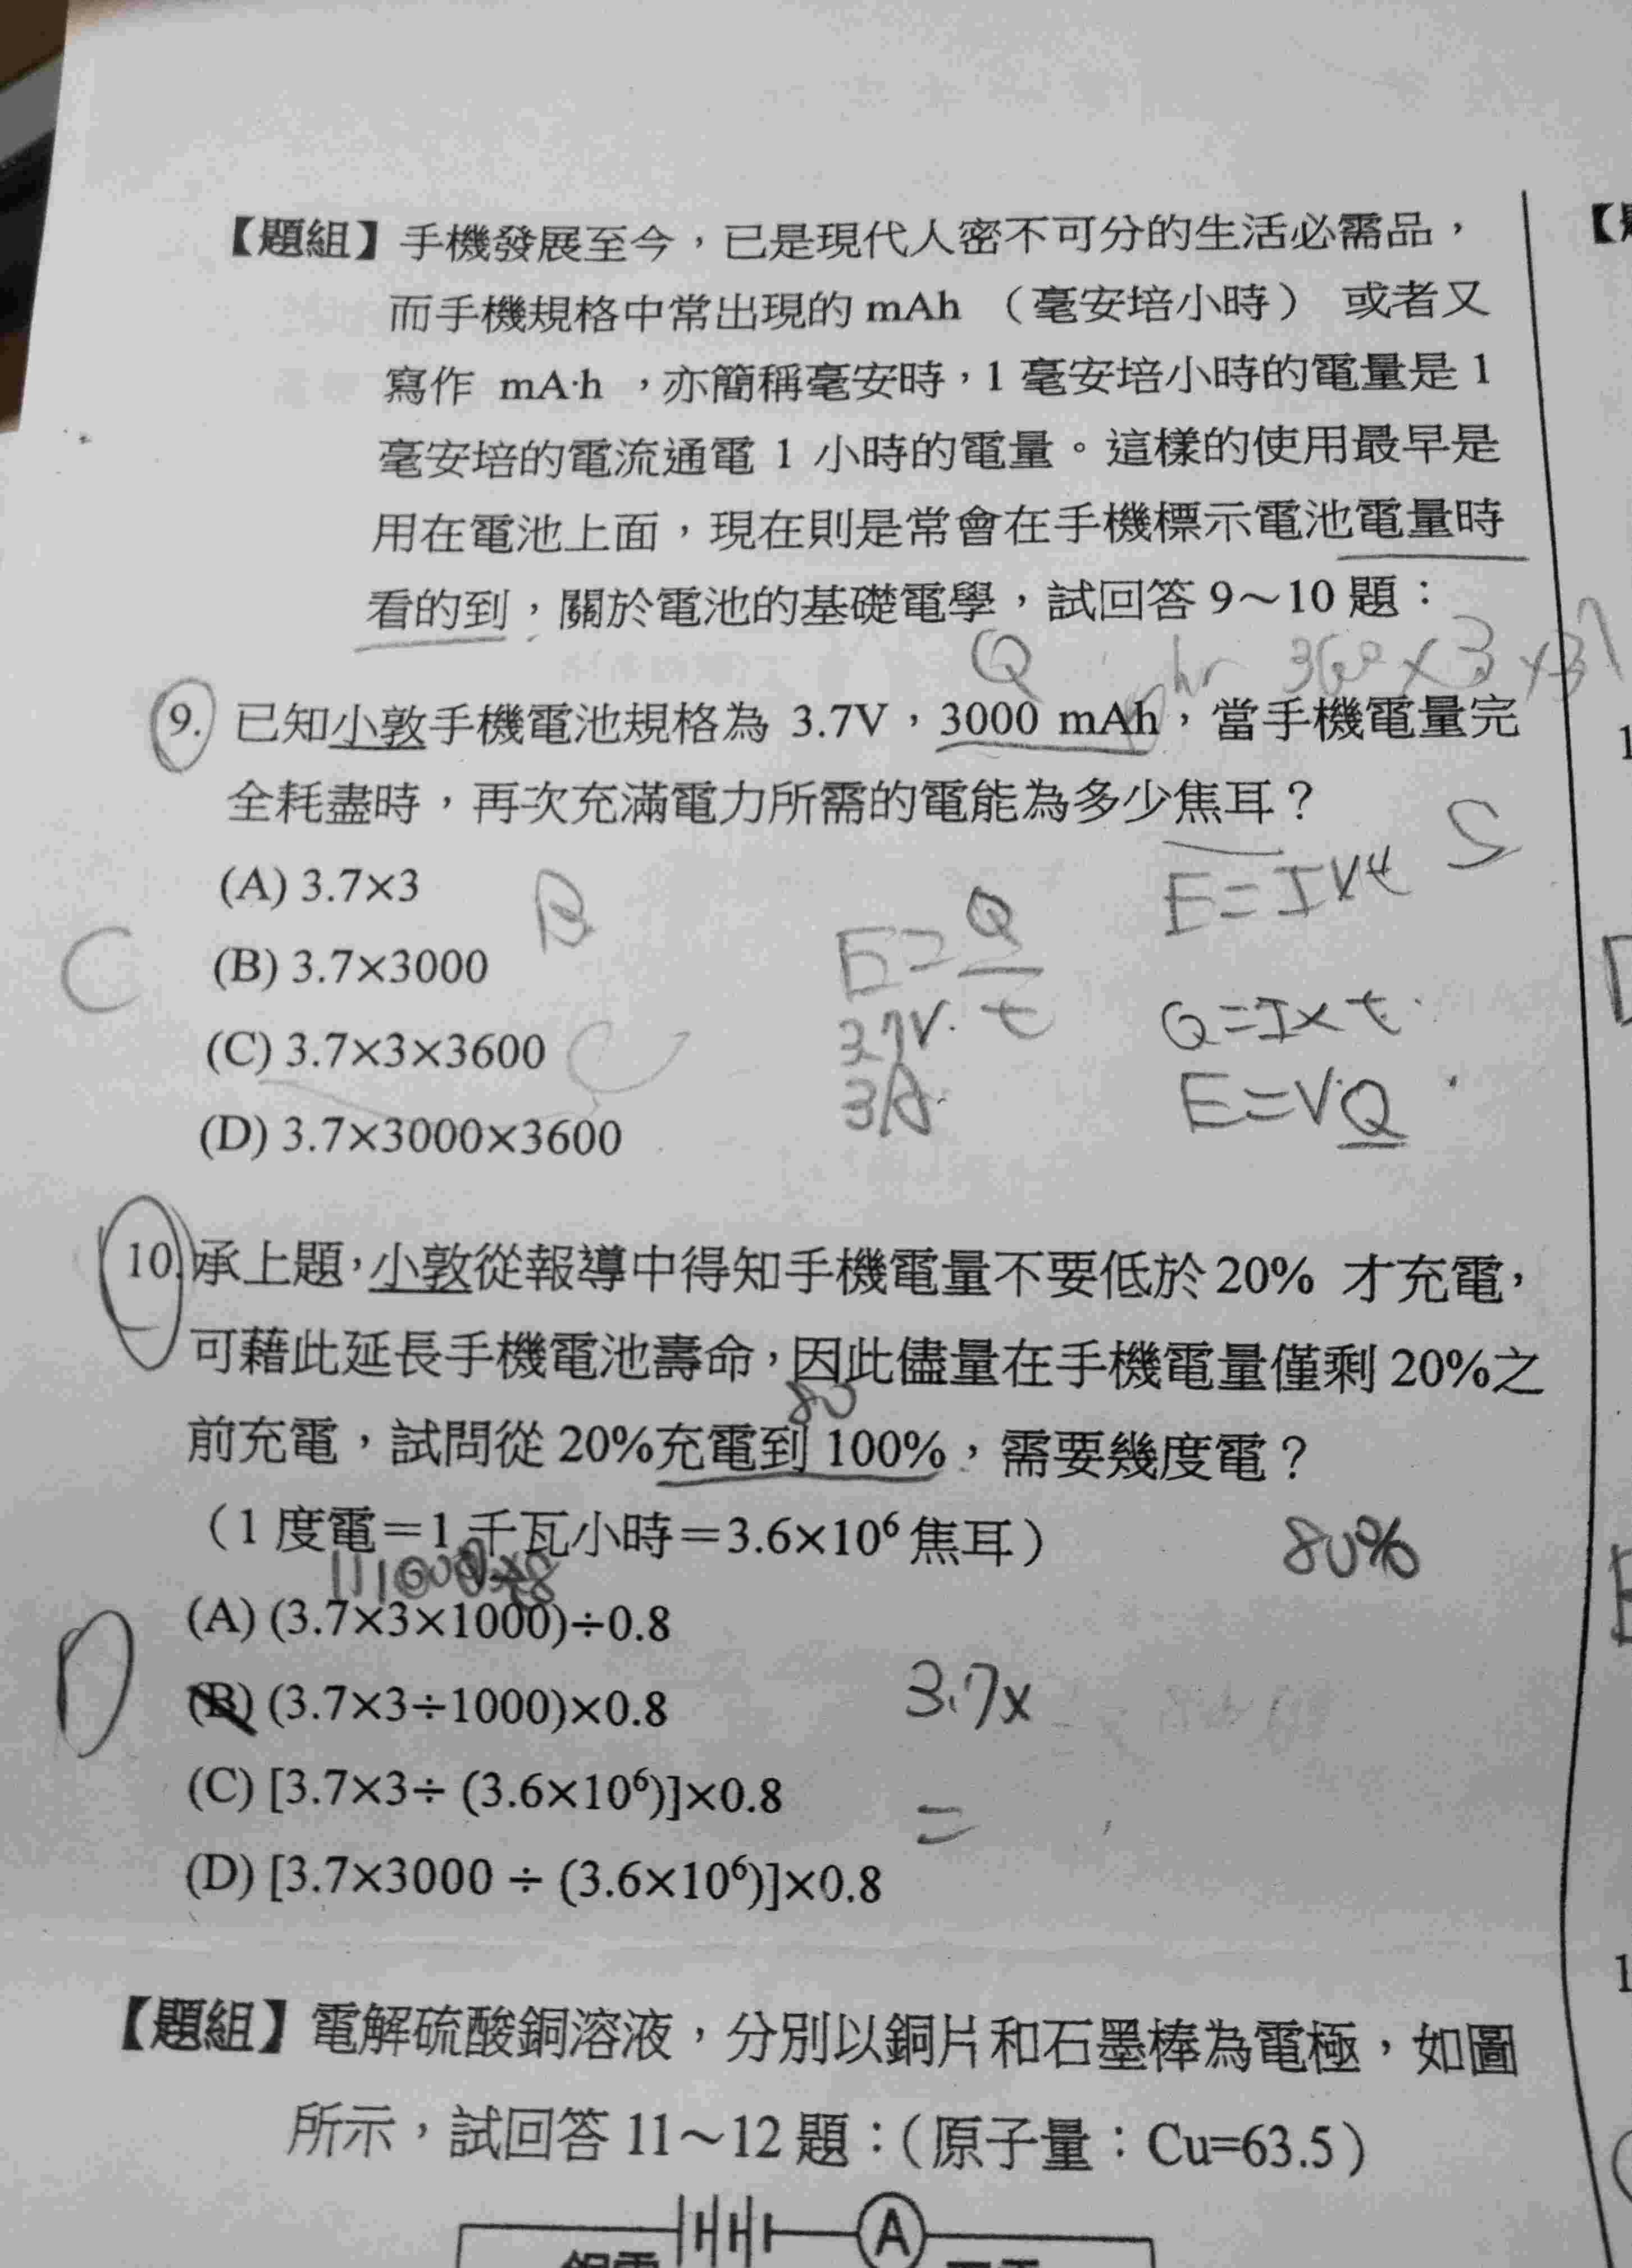 【題組】手機發展至今，已是現代人密不可分的生活必需品，
而手機規格中常出現的 mAh （毫安培小時） 或者又
寫作 mA·h ，亦簡稱毫安時，1 毫安培小時的電量是 1
毫安培的電流通電 1 小時的電量。這樣的使用最早是
用在電池上面，現在則是常會在手機標示電池電量時
看的到，關於電池的基礎電學，試回答 9～10 題：
Q hr
9. 已知小敦手機電池規格為 3.7V，3000 mAh，當手機電量完
全耗盡時，再次充滿電力所需的電能為多少焦耳？
S
E=IVt
(A) 3.7×3
B
E=Q/t
C
(B) 3.7×3000
Q=I×t
3.7V
(C) 3.7×3×3600
C
3A
E=VQ
(D) 3.7×3000×3600
10. 承上題，小敦從報導中得知手機電量不要低於 20% 才充電，
可藉此延長手機電池壽命，因此儘量在手機電量僅剩 20%之
80
前充電，試問從 20%充電到 100%，需要幾度電？
（1 度電＝1 千瓦小時＝3.6×10⁶ 焦耳）
80%
(A) (3.7×3×1000)÷0.8
D
(B) (3.7×3÷1000)×0.8
3.7×
(C) [3.7×3÷ (3.6×10⁶)]×0.8
=
(D) [3.7×3000 ÷ (3.6×10⁶)]×0.8
【題組】電解硫酸銅溶液，分別以銅片和石墨棒為電極，如圖
所示，試回答 11～12 題：（原子量：Cu=63.5）
A